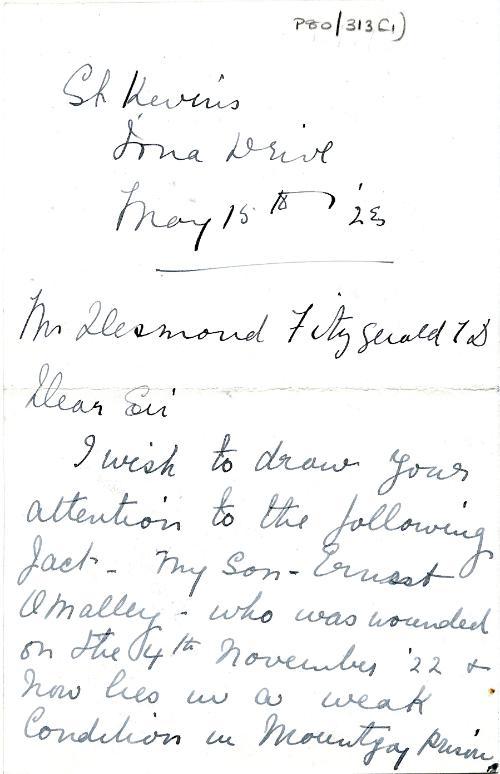 P80/313(1)
St Kevins
Iona Drive
May 15th '23
Mr Desmond Fitzgerald TD
Dear Sir
I wish to draw your
attention to the following
fact - My Son - Ernest
OMalley - who was wounded
on the 4th November '22 &
now lies in a weak
Condition in Mountjoy Prison